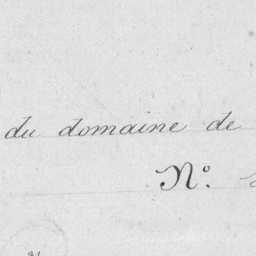 du domaine de
Nº.